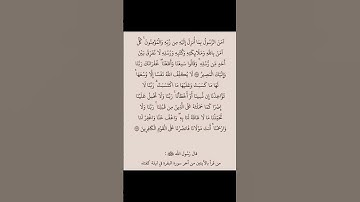 ءَامَنَ ٱلرَّسُولُ بِمَآ أُنزِلَ إِلَيْهِ مِن رَّبِّهِۦ وَٱلْمُؤْمِنُونَ ۚ كُلٌّ
ءَامَنَ بِٱللَّهِ وَمَلَـٰٓئِكَتِهِۦ وَكُتُبِهِۦ وَرُسُلِهِۦ لَا نُفَرِّقُ بَيْنَ
أَحَدٍ مِّن رُّسُلِهِۦ ۚ وَقَالُوا۟ سَمِعْنَا وَأَطَعْنَا ۖ غُفْرَانَكَ رَبَّنَا
وَإِلَيْكَ ٱلْمَصِيرُ ۝ لَا يُكَلِّفُ ٱللَّهُ نَفْسًا إِلَّا وُسْعَهَا ۚ
لَهَا مَا كَسَبَتْ وَعَلَيْهَا مَا ٱكْتَسَبَتْ ۗ رَبَّنَا لَا
تُؤَاخِذْنَآ إِن نَّسِينَآ أَوْ أَخْطَأْنَا ۚ رَبَّنَا وَلَا تَحْمِلْ عَلَيْنَآ
إِصْرًا كَمَا حَمَلْتَهُۥ عَلَى ٱلَّذِينَ مِن قَبْلِنَا ۚ رَبَّنَا وَلَا
تُحَمِّلْنَا مَا لَا طَاقَةَ لَنَا بِهِۦ ۖ وَٱعْفُ عَنَّا وَٱغْفِرْ لَنَا
وَٱرْحَمْنَآ ۚ أَنتَ مَوْلَىٰنَا فَٱنصُرْنَا عَلَى ٱلْقَوْمِ ٱلْكَـٰفِرِينَ ۝
قال رسول الله ﷺ :
من قرأ بالآيتين من آخر سورة البقرة في ليلة كفتاه